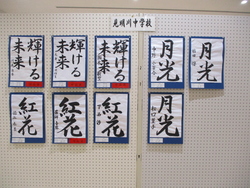 見明川中学校
輝ける
未来
輝ける
未来
輝ける
未来
月光
月光
紅花
紅花
紅花
月光